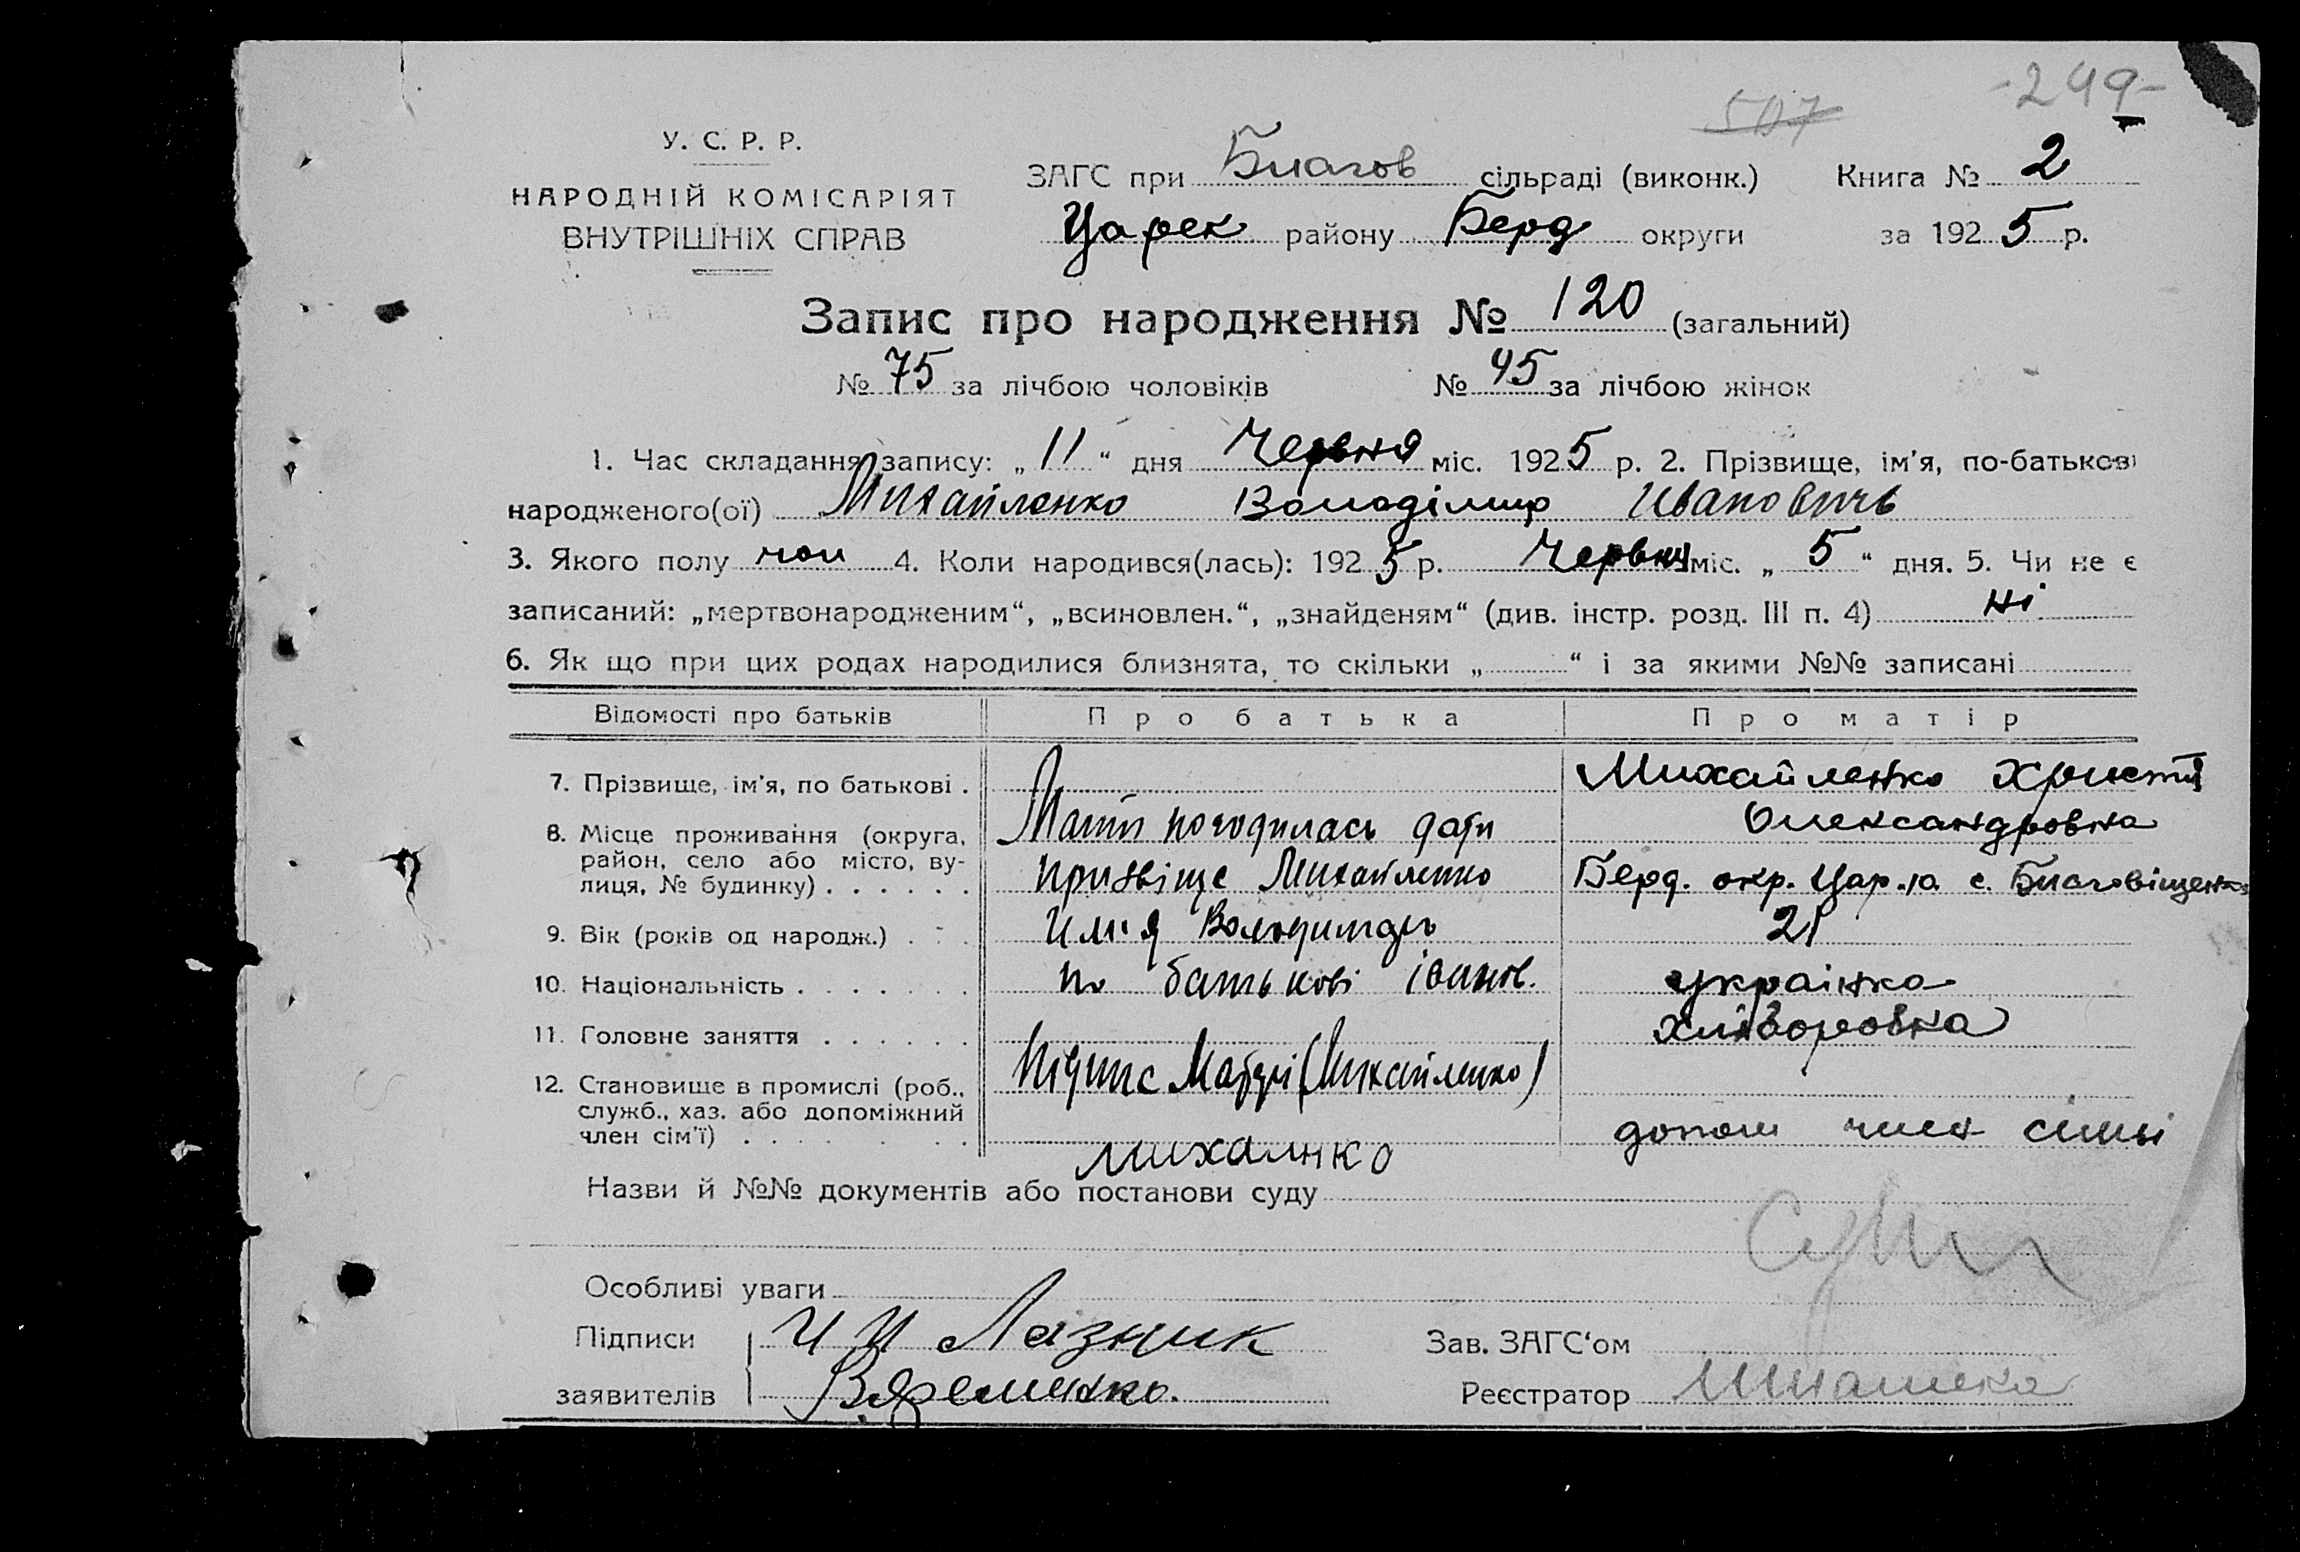 -249-
507
У. С. Р. Р.
НАРОДНІЙ КОМІСАРІЯТ
ВНУТРІШНІХ СПРАВ
ЗАГС при Благов сільраді (виконк.) Книга № 2
Царек району Берд округи за 1925 р.
Запис про народження № 120 (загальний)
№ 75 за лічбою чоловіків № 45 за лічбою жінок
1. Час складання запису: „11“ дня Червня міс. 1925 р. 2. Прізвище, ім'я, по-батькові
народженого(ої) Михайленко Володімир Ивановичь
3. Якого полу чол 4. Коли народився(лась): 1925 р. Червня міс. „5“ дня. 5. Чи не є
записаний: „мертвонародженим“, „всиновлен.“, „знайденям“ (див. інстр. розд. III п. 4) ні
6. Як що при цих родах народилися близнята, то скільки „ “ і за якими №№ записані
Відомості про батьків Про батька Про матір
7. Прізвище, ім'я, по батькові . Михайленко Христя
Олександровна
8. Місце проживання (округа, район, село або місто, вулиця, № будинку) . . . . . . Мати погодилась дати
призвіще Михайленко Берд. окр. Цар. с. Благовіщенка
9. Вік (років од народж.) . . . Им'я Володимир 21
10. Національність . . . . . . . по батькові іванов. українка
11. Головне заняття . . . . . . хліборобка
12. Становище в промислі (роб., служб., хаз. або допоміжний член сім'ї) . . . . . . . . Підпис Матері (Михайленко) допом член сімьі
михалнко
Назви й №№ документів або постанови суду
Особливі уваги
Підписи И И Лазник Зав. ЗАГС'ом
заявителів В Яременко. Реєстратор